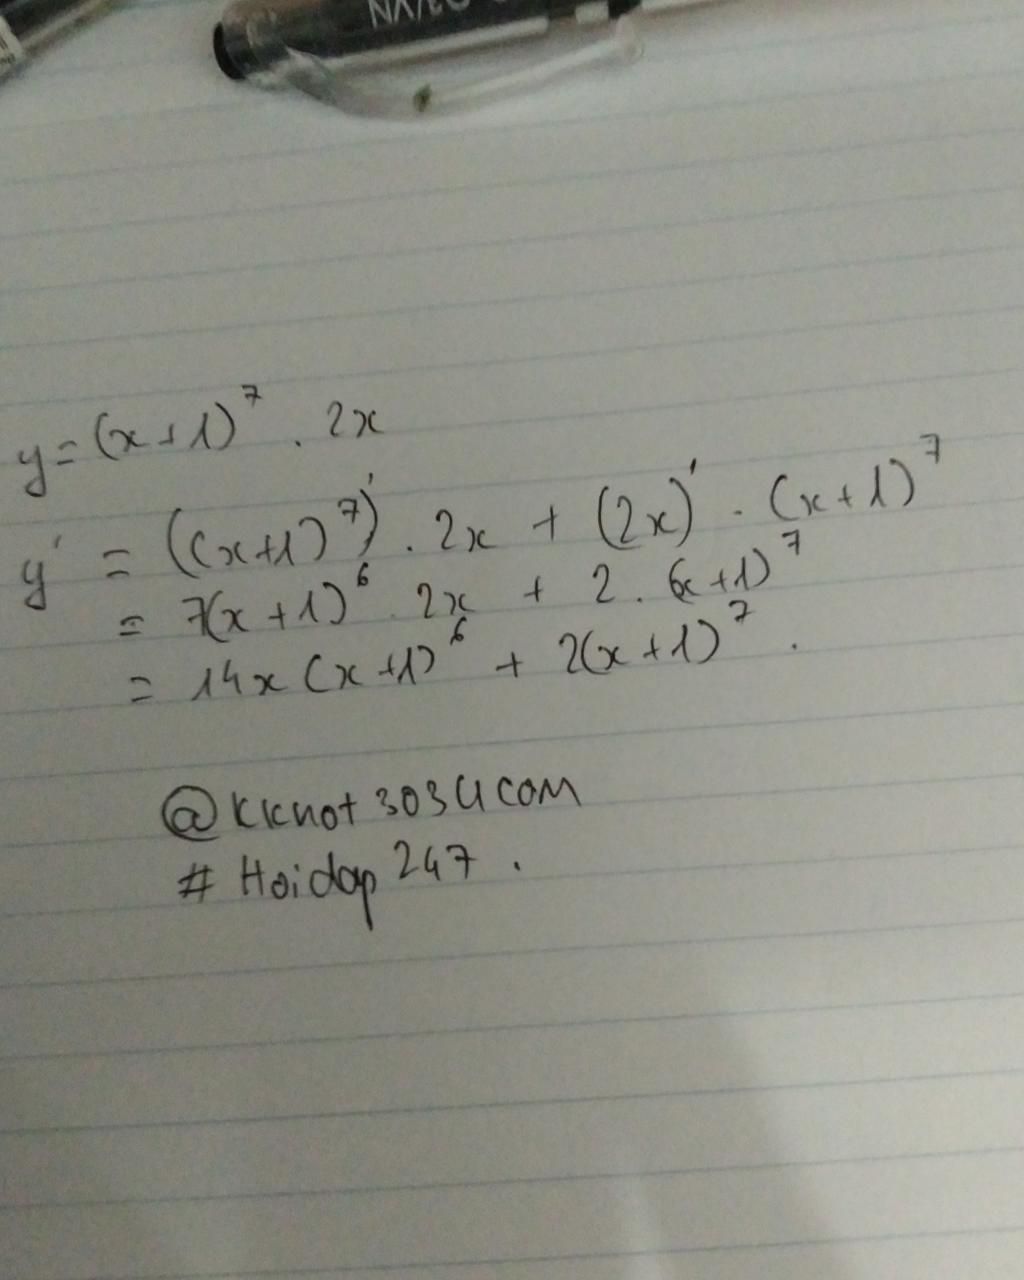 y = (x+1)⁷ . 2x
y' = ((x+1)⁷)' . 2x + (2x)' . (x+1)⁷
= 7(x+1)⁶ . 2x + 2 . (x+1)⁷
= 14x (x+1)⁶ + 2(x+1)⁷ .
# Hoidap 247 .